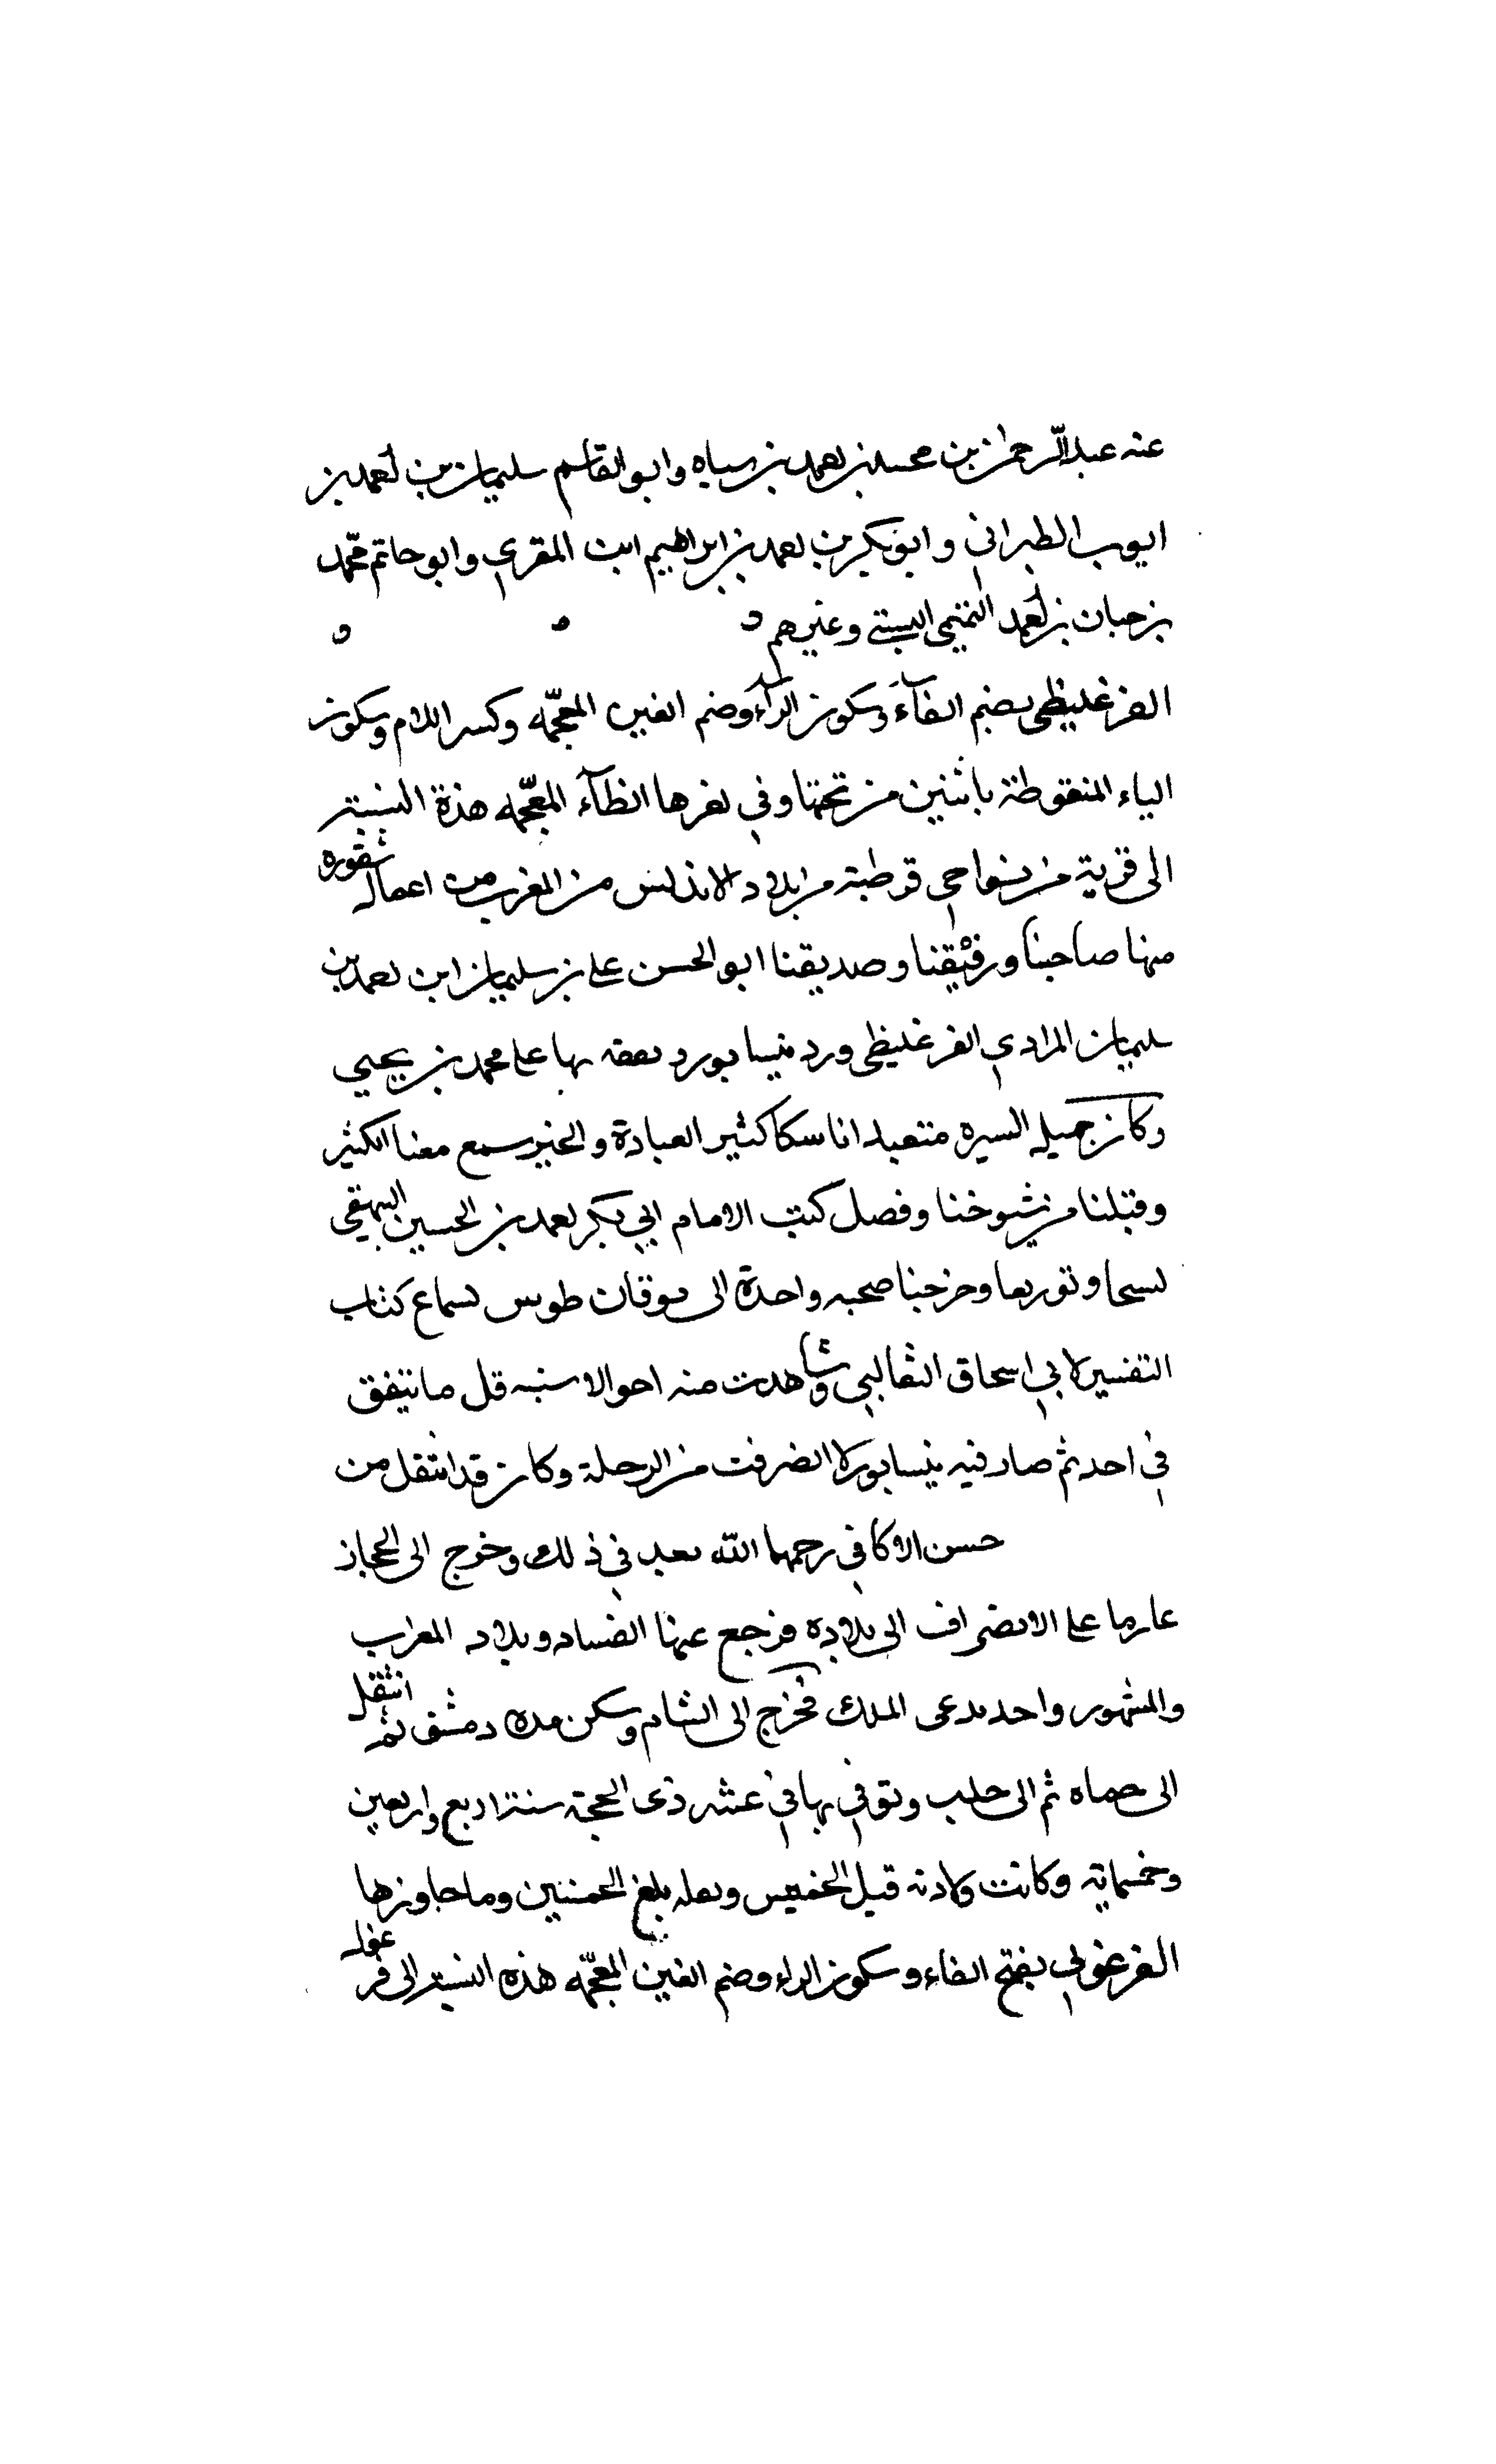 عنه عبد الرحمن بن محمد بن احمد بن سياه وابو القاسم سليمان بن احمد بن
ايوب الطبراني وابو بكر بن احمد بن ابراهيم ابن المقري وابو حاتم محمد
بن حبان بن احمد التميمي البستي وغيرهم ه ه ه
الفرغليظي بضم الفآء وسكون الرآء وضم الغين المعجمه وكسر اللام وسكون
الياء المنقوطة باثنين من تحتها وفي اخرها الظآء المعجمه هذة النسبة
الى قرية من نواحي قرطبة من بلاد الاندلس من المغرب من اعمال شقوره
منها صاحبنا ورفيقنا وصديقنا ابو الحسن علي بن سليمان ابن احمد بن
سليمان المرادي الفرغليظي ورد نيسابور وتفقه بها على محمد بن يحيي
وكان جميله السيره متعبدا ناسكا كثير العبادة والخير سمع معنا الكثير
وقبلنا من شيوخنا وفصل كتب الامام ابي بكر احمد بن الحسين البيهقي
نسخا وتوريعا وخرجنا صحبه واحدة الى نوقان طوس لسماع كتاب
التفسير لابي اسحاق الثعالبي وشاهدت منه احوالا سنيه قل ما تتفق
في احد ثم صادفته بنيسابور لا انصرفت من الرحلة وكان قد انتقل من
حسن الاكافي رحمهما الله بعد في ذلك وخرج الى الحجاز
عازما على الانصراف الى بلاده فرجع عنها الفساد وبلاد المغرب
والمشهور واحد يدعى الملك فخرج الى الشام وسكن مدة دمشق ثم انتقل
الى حماه ثم الى حلب وتوفي بها في عشر ذى الحجة سنة اربع واربعين
وخمسماية وكانت ولادته قبل الخمسين ولعله بلغ الخمسين وما جاوزها
الفرغولي بفتح الفاء وسكون الراء وضم الغين المعجمه هذه النسبة الى فرغوله